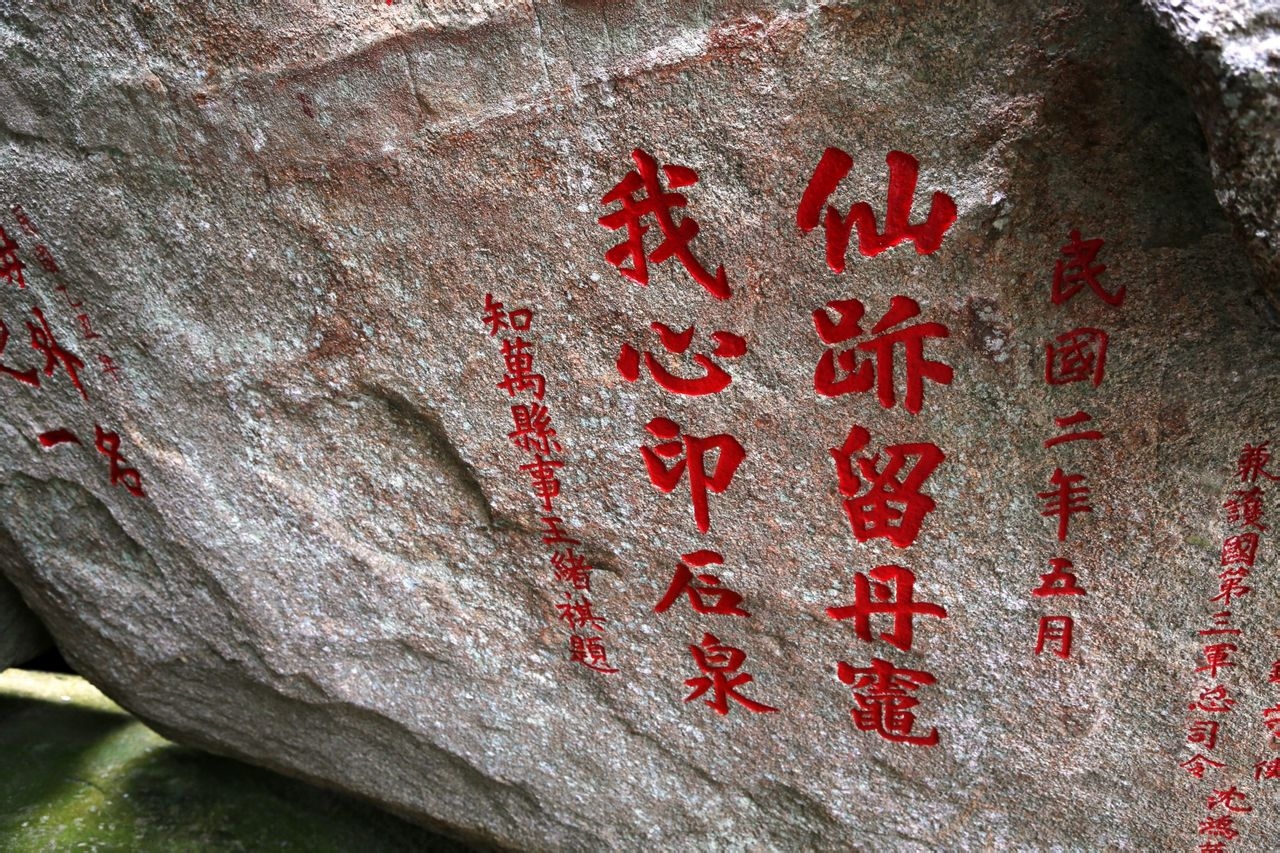 兼護國第三軍總司令沈鴻
民國二年五月
仙跡留丹竈
我心印石泉
知萬縣事王緒祺題
外
一名